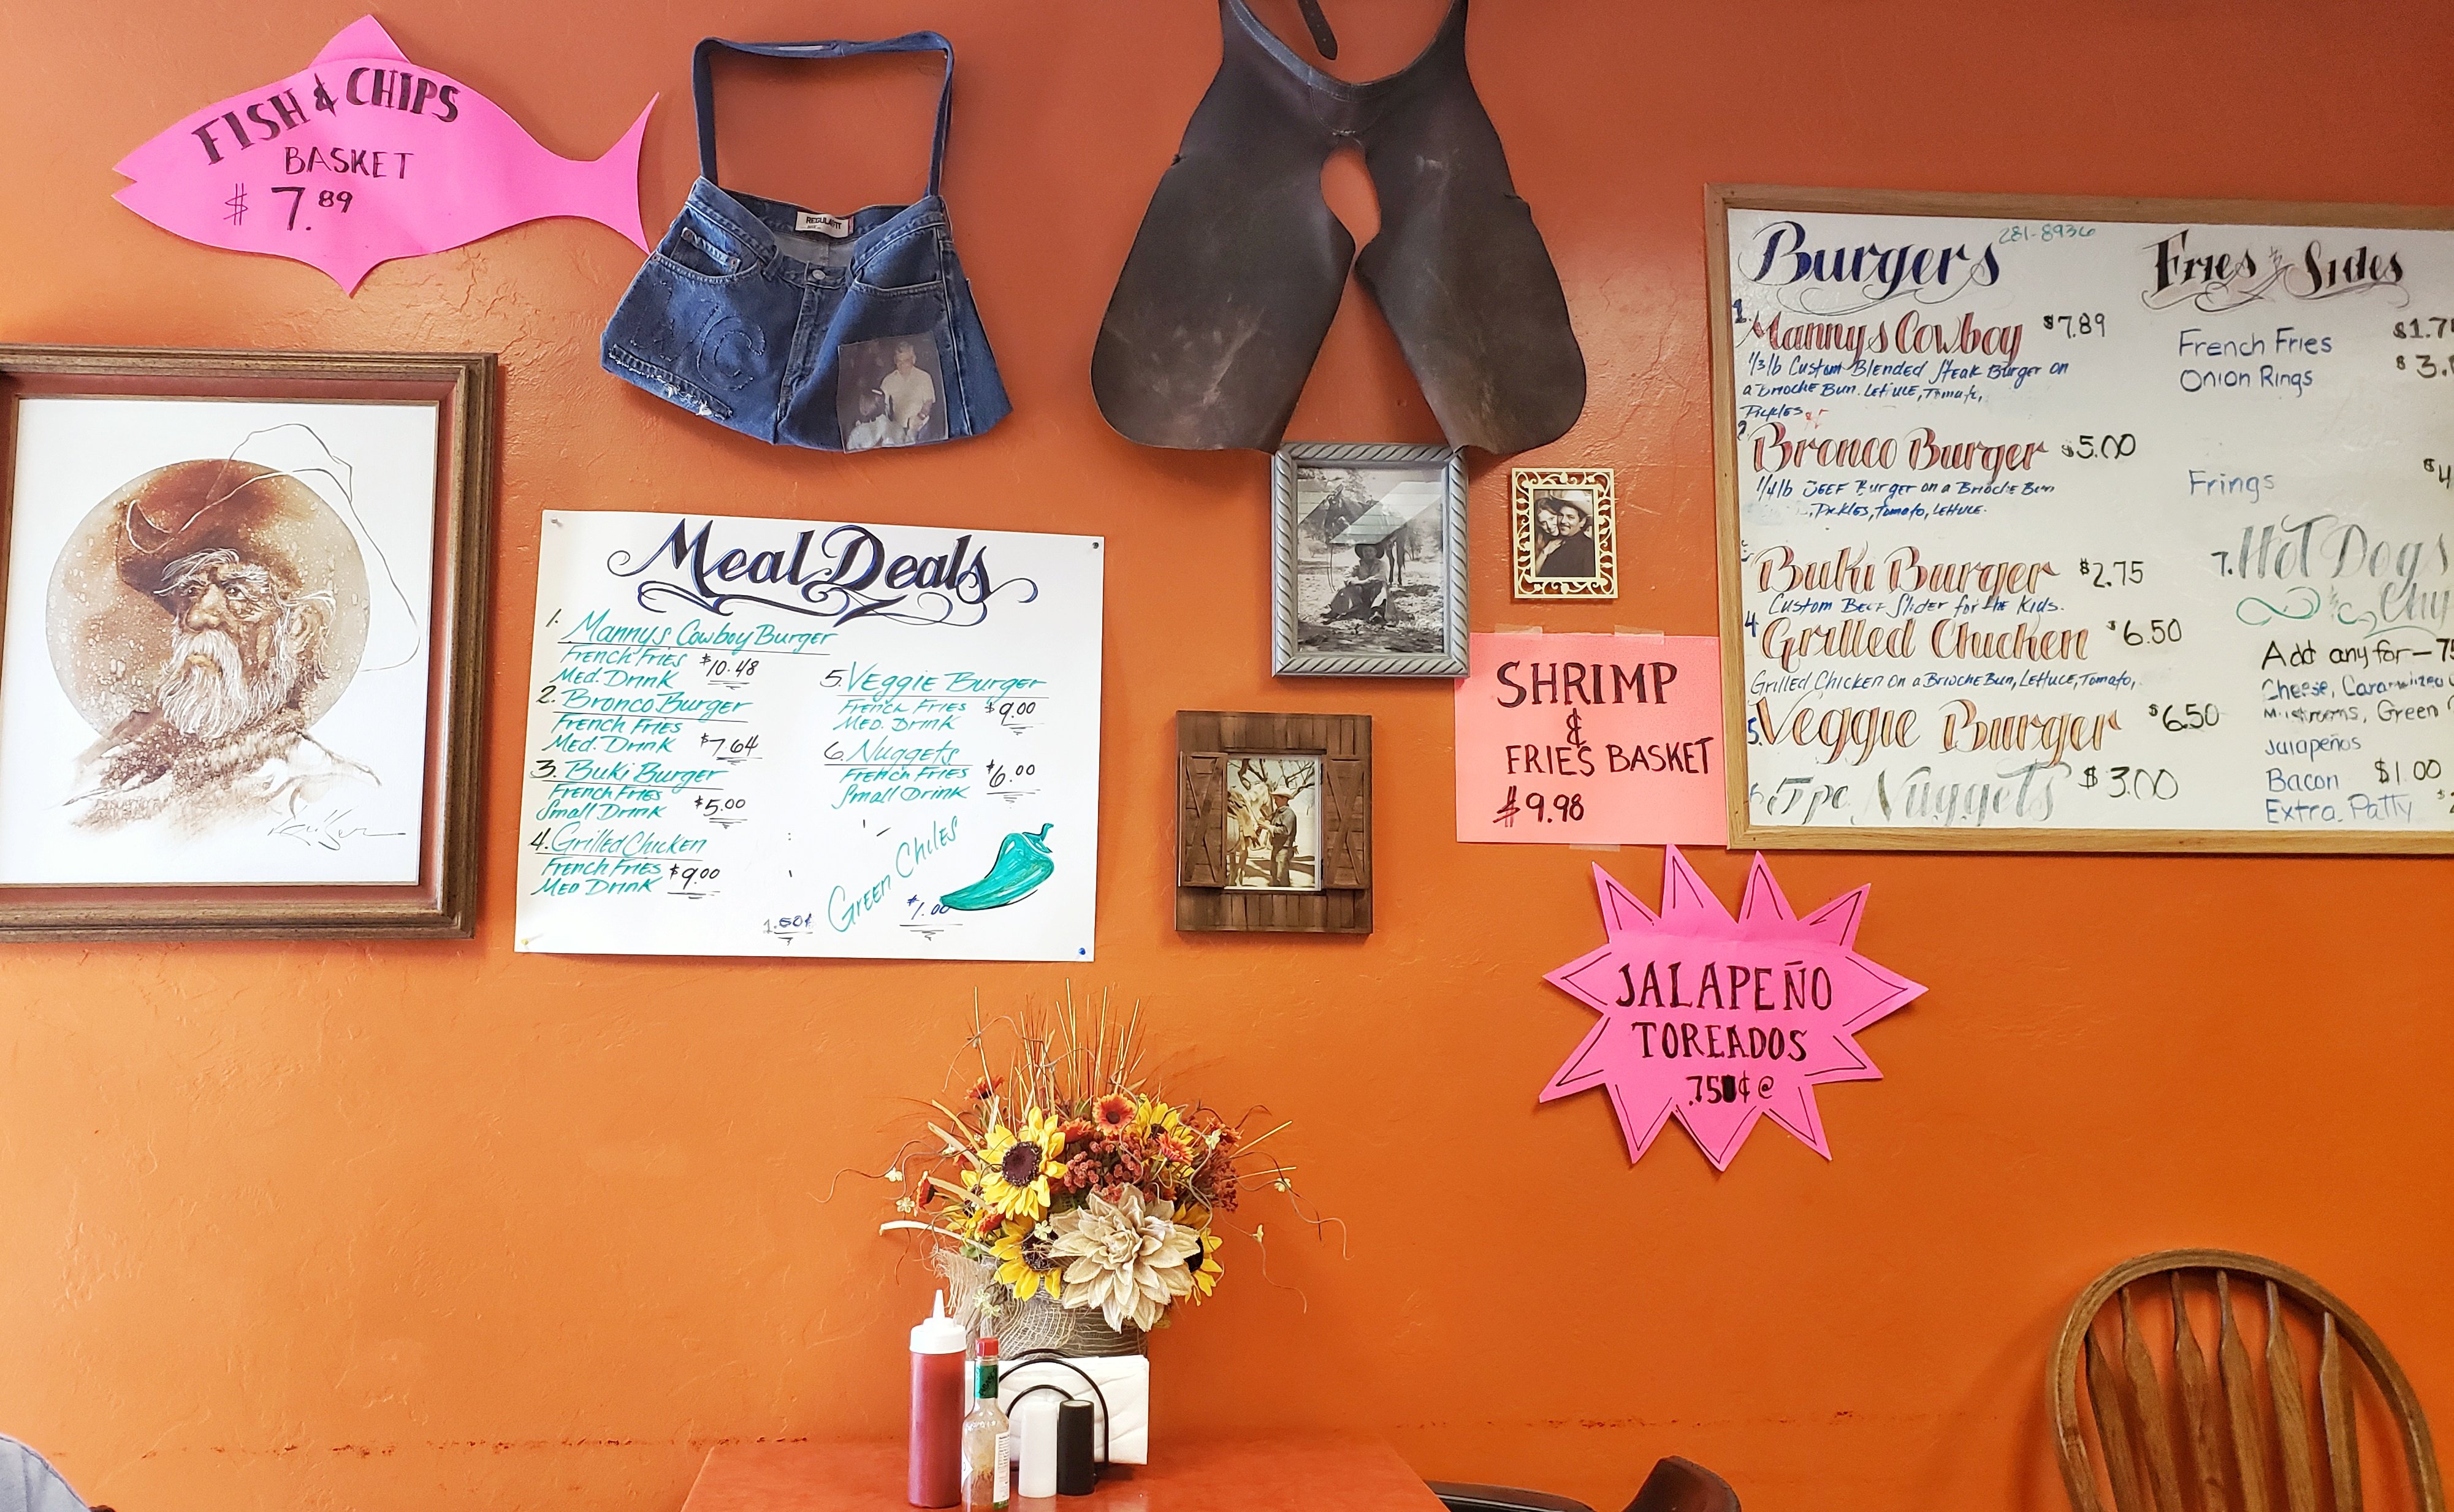 FISH & CHIPS
BASKET
$7.89
Meal Deals
1. Mannys Cowboy Burger
French Fries $10.48
Med. Drink
2. Bronco Burger
French Fries
Med. Drink $7.64
3. Buki Burger
French Fries
Small Drink $5.00
4. Grilled Chicken
French Fries $9.00
Med Drink
5. Veggie Burger
French Fries $9.00
Med. Drink
6. Nuggets
French Fries $6.00
Small Drink
Green Chiles
$1.00
1.50¢
SHRIMP
&
FRIES BASKET
$9.98
JALAPEÑO
TOREADOS
.75¢ @
Burgers 281-8936
1. Mannys Cowboy $7.89
1/3 lb Custom Blended Steak Burger on
a Brioche Bun. Lettuce, Tomato,
Pickles
2. Bronco Burger $5.00
1/4 lb Beef Burger on a Brioche Bun
, Pickles, Tomato, Lettuce.
Buki Burger $2.75
Custom Beef Slider for the Kids.
4. Grilled Chicken $6.50
Grilled Chicken on a Brioche Bun, Lettuce, Tomato,
5. Veggie Burger $6.50
6. 5pc Nuggets $3.00
Fries & Sides
French Fries $1.7
Onion Rings $3.
Frings $4
7. Hot Dogs
Add any for - 75
Cheese, Caramelized
Mushrooms, Green
Jalapeños
Bacon $1.00
Extra Patty $